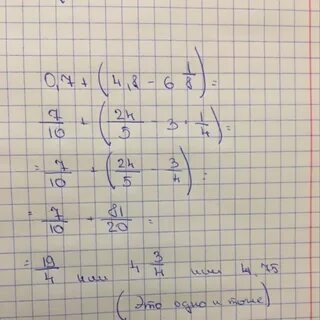 0,7 + (4,8 - 6 1/8) =
7/10 + (24/5 - 3 · 1/4) =
= 7/10 + (24/5 - 3/4) =
= 7/10 + 81/20 =
= 19/4 или 4 3/4 или 4.75
(Это одно и тоже)